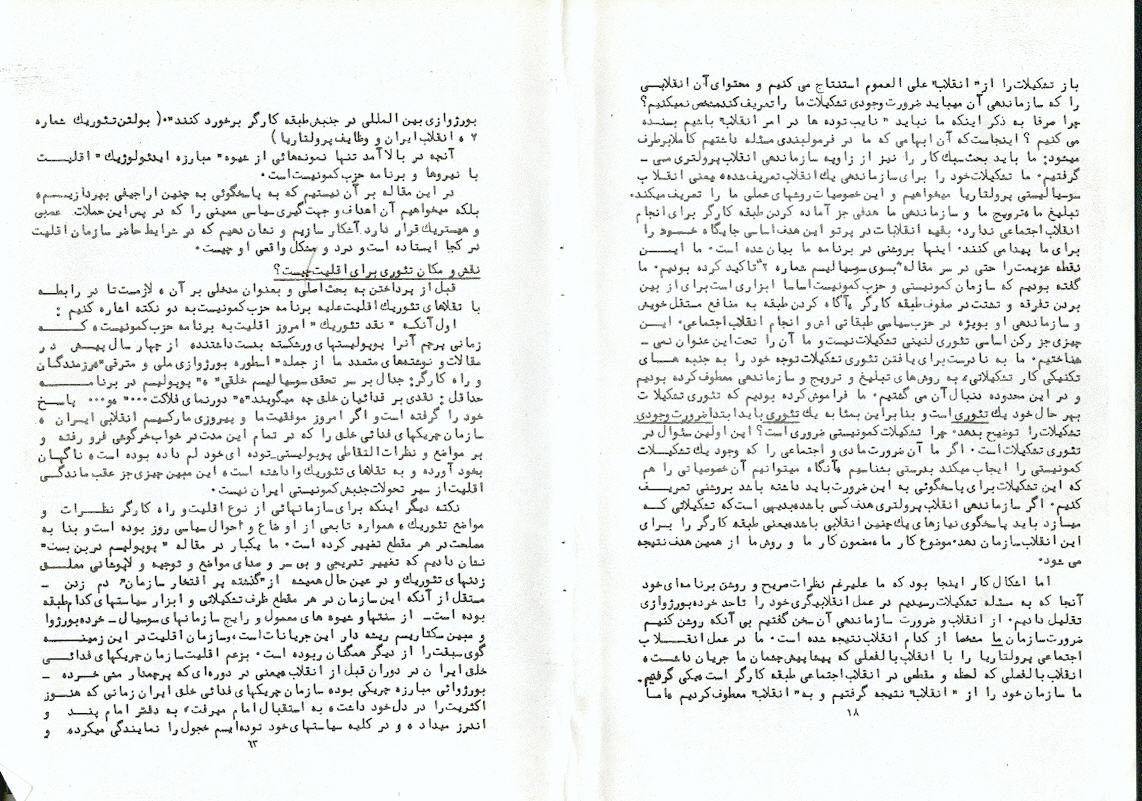 باز تشکیلات را از "انقلاب" علی العموم استنتاج می کنیم و محتوای آن انقلابـی
را که سازماندهی آن میباید ضرورت وجودی تشکیلات ما را تعریف کند مشخص نمیکنیم؟
چرا صرفا به ذکر اینکه ما نباید "نایب توده ها در امر انقلاب" باشیم بسنده
می کنیم ؟ اینجاست که آن ابهامی که ما در فرمولبندی مسئله داشتیم کاملا برطرف
میشود: ما باید بحث سبک کار را نیز از زاویه سازماندهی انقلاب پرولتری مـی -
گرفتیم. ما تشکیلات خود را برای سازماندهی یک انقلاب تعریف شده، یعنی انقـلاب
سوسیالیستی پرولتاریا میخواهیم و این خصوصیات روشهای عملی ما را تعریف میکند.
تبلیغ ما، ترویج ما و سازماندهی ما هدفی جز آماده کردن طبقه کارگر برای انجام
انقلاب اجتماعی ندارد. بقیه انقلابات در پرتو این هدف اساسی جایگاه خـود را
برای ما پیدا می کنند. اینها بروشنی در برنامه ما بیان شده است. ما ایـن
نقطه عزیمت را حتی در سر مقاله "بسوی سوسیالیسم شماره ۲" تاکید کرده بودیم. ما
گفته بودیم که سازمان کمونیستی و حزب کمونیست اساسا ابزاری است برای از بین
بردن تفرقه و تشتت در صفوف طبقه کارگر و آگاه کردن طبقه به منافع مستقل خویش
و سازماندهی او بویژه در حزب سیاسی طبقاتی اش و انجام انقلاب اجتماعی. ایـن
چیزی جز رکن اساسی تئوری لنینی تشکیلات نیست و ما آن را تحت این عنوان نمی -
شناختیم. ما به نادرست برای یافتن تئوری تشکیلات توجه خود را به جنبه هـای
تکنیکی کار تشکیلاتی، به روش های تبلیغ و ترویج و سازماندهی معطوف کرده بودیم
و در این محدوده دنبال آن می گشتیم. ما فراموش کرده بودیم که تئوری تشکیلات
بهر حال خود یک تئوری است و بنابراین بمثابه یک تئوری باید ابتدا ضرورت وجودی
تشکیلات را توضیح بدهد. چرا تشکیلات کمونیستی ضروری است؟ این اولین سئوال در
تئوری تشکیلات است. اگر ما آن ضرورت مادی و اجتماعی را که وجود یک تشکیـلات
کمونیستی را ایجاب میکند بدرستی بشناسیم، آنگاه میتوانیم آن خصوصیاتی را هم
که این تشکیلات برای پاسخگوئی به این ضرورت باید داشته باشد بروشنی تعریـف
کنیم. اگر سازماندهی انقلاب پرولتری هدف کسی باشد، بدیهی است که تشکیلاتی کـه
میسازد باید پاسخگوی نیازهای یک چنین انقلابی باشد، یعنی طبقه کارگر را بـرای
این انقلاب سازمان دهد. موضوع کار ما، مضمون کار ما و روش ما از همین هدف نتیجه
می شود.
اما اشکال کار اینجا بود که ما علیرغم نظرات صریح و روشن برنامه ای خود
آنجا که به مسئله تشکیلات رسیدیم در عمل انقلابیگری خود را تا حد خرده بورژوازی
تقلیل دادیم. از انقلاب و ضرورت سازماندهی آن سخن گفتیم بی آنکه روشن کنیـم
ضرورت سازمان ما مشخصا از کدام انقلاب نتیجه شده است. ما در عمل انقـلاب
اجتماعی پرولتاریا را با انقلاب بالفعلی که پیشاپیش چشمان ما جریان داشت،
انقلاب بالفعلی که لحظه و مقطعی در انقلاب اجتماعی طبقه کارگر است، یکی گرفتیم.
ما سازمان خود را از "انقلاب" نتیجه گرفتیم و به "انقلاب" معطوف کردیم، امـا
۱۸
بورژوازی بین المللی در جنبش طبقه کارگر برخورد کنند".( بولتن تئوریک شماره
۲، انقلاب ایران و وظایف پرولتاریا )
آنچه در بالا آمد تنها نمونه هائی از شیوه "مبارزه ایدئولوژیک" اقلیـت
با نیروها و برنامه حزب کمونیست است.
در این مقاله بر آن نیستیم که به پاسخگوئی به چنین اراجیفی بپردازیـم،
بلکه میخواهیم آن اهداف و جهت گیری سیاسی معینی را که در پس این حملات عصبی
و هیستریک قرار دارد، آشکار سازیم و نشان دهیم که در شرایط حاضر سازمان اقلیت
در کجا ایستاده است و درد و مشکل واقعی او چیست.
نقش و مکان تئوری برای اقلیت چیست؟
قبل از پرداختن به بحث اصلی و بعنوان مدخلی بر آن، لازمست تا در رابطـه
با تقلاهای تئوریک اقلیت علیه برنامه حزب کمونیست به دو نکته اشاره کنیم :
اول آنکـه "نقد تئوریک" امروز اقلیت به برنامه حزب کمونیست کـــه
زمانی پرچم آنرا پوپولیستهای ورشکسته بدست داشتند، از چهار سال پیـش در
مقالات و نوشته های متعدد ما از جمله "اسطوره بورژوازی ملی و مترقی"، رزمندگان
و راه کارگر: جدال بر سر تحقق سوسیالیسم خلقی"، "پوپولیسم در برنامـه
حداقل : نقدی بر فدائیان خلق چه میگویند"، "دورنمای فلاکت ..." و... پاسـخ
خود را گرفته است و اگر امروز موفقیت ما و پیروزی مارکسیسم انقلابی ایـران ،
سازمان چریکهای فدائی خلق را که در تمام این مدت در خواب خرگوشی فرو رفته و
بر مواضع و نظرات التقاطی پوپولیستی توده ای خود لم داده بوده است، ناگهان
بخود آورده و به تقلاهای تئوریک واداشته است، این مبین چیزی جز عقب ماندگـی
اقلیت از سیر تحولات جنبش کمونیستی ایران نیست.
نکته دیگر اینکه برای سازمانهائی از نوع اقلیت و راه کارگر نظـرات و
مواضع تئوریک، همواره تابعی از اوضاع و احوال سیاسی روز بوده است و بنا به
مصلحت در هر مقطع تغییر کرده است. ما یکبار در مقاله "پوپولیسم در بن بست"
نشان دادیم که تغییر تدریجی و بی سر و صدای مواضع و توجیه و لاپوشانی معلـق
زدنهای تئوریک و در عین حال همیشه از "گذشته پر افتخار سازمان" دم زدن -
مستقل از آنکه این سازمان در هر مقطع ظرف تشکیلاتی و ابزار سیاستهای کدام طبقه
بوده است - از سنتها و شیوه های معمول و رایج سازمانهای سوسیال - خرده بورژوا
و مبین سکتاریسم ریشه دار این جریانات است، و سازمان اقلیت در این زمینـه
گوی سبقت را از دیگر همگنان ربوده است. بزعم اقلیت سازمان چریکهای فدائـی
خلق ایران در دوران قبل از انقلاب، یعنی در دوره ای که پرچمدار مشی خـرده -
بورژوائی مبارزه چریکی بوده سازمان چریکهای فدائی خلق ایران زمانی که هنـوز
اکثریت را در دل خود داشت، به استقبال امام میرفت، به دفتر امام پنـد و
اندرز میداد، و در کلیه سیاستهای خود توده ایسم خجول را نمایندگی میکرده و
۶۳